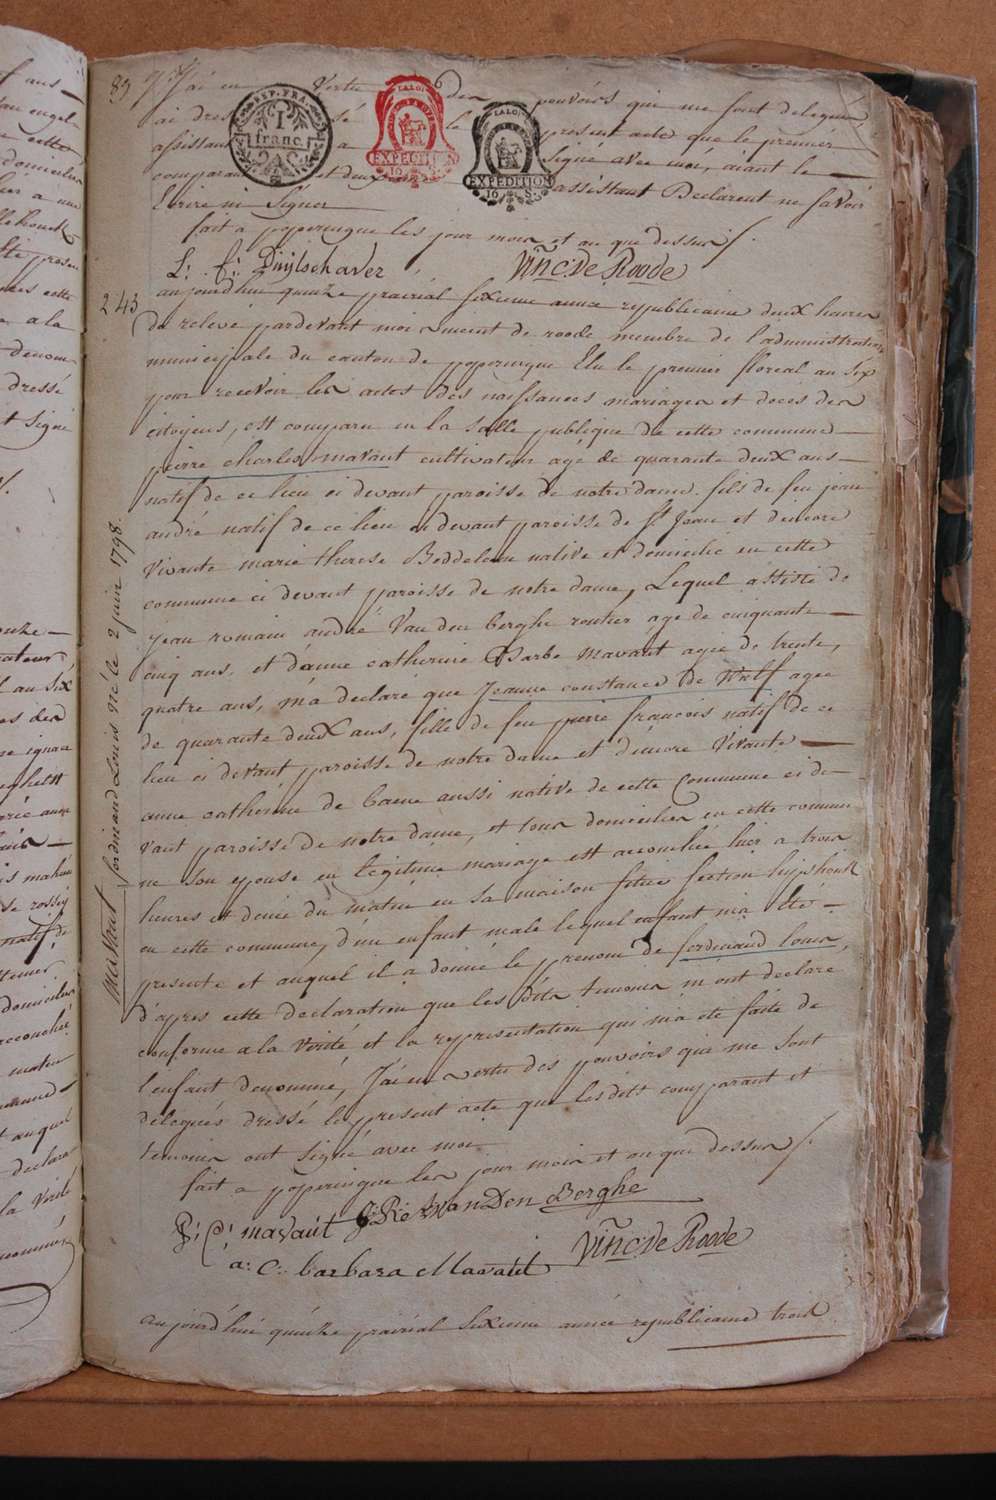 89
J'ai en vertu des pouvoirs qui me sont delegués
ai dressé le present acte que le premier
assistant a signé avec moi, aiant le
comparant et deux assistant Declarent ne savoir
Ecrire ni Signer
fait a poperingue les jour mois et an que dessus /.
Vinc: De Roode
243
aujourd'hui quinze prairial sixieme année republicaine deux heures
de relevé pardevant moi vincent de roode membre de l'administration
municipale du canton de poperingue Elu le premier floreal an six
pour recevoir les actes des naissances mariages et deces des
citoyens, est comparu en la salle publique de cette commune
pierre charles mavaut cultivateur agé de quarante deux ans
natif de ce lieu ci devant paroisse de notre dame. fils de feu jean
andré natif de ce lieu ci devant paroisse de St Jean et dencore
vivante marie therese Boddelaen native et domicilié en cette
commune ci devant paroisse de notre dame, Lequel assisté de
jean romain andré Van den berghe routier agé de cinquante
cinq ans, et d'anne catherine Barbe Mavaut agée de trente
quatre ans, m'a declaré que Jeanne constance de Wulf agée
de quarante deux ans, fille de feu pierre françois natif de ce
lieu ci devant paroisse de notre dame et d'encore Vivante
anne catherine de baene aussi native de cette Commune ci de
vant paroisse de notre dame, et tous domiciliés en cette commu
ne son epouse en legitime mariage est accouchée hier a trois
heures et demie du matin en sa maison sitúé section
en cette commune, d'un enfant male lequel enfant m'a été
presenté et auquel il a donné le prenom de ferdinand louis,
d'après cette declaration que les dits temoins m'ont declaré
conforme a la verité et la representation qui m'a été faite de
l'enfant denommé, J'ai en vertu des pouvoirs qui me sont
delegués dressé le present acte que les dits comparant et
temoins ont signé avec moi
fait a poperingue les jour mois et an qui dessus /.
P: C: mavaut J: R: A: van Den Berghe
a: C: barbara Mavaut Vinc: De Roode
aujourd'hui quinze prairial sixieme année republicaine trois
Mavaut ferdinand Louis né le 2 juin 1798.
REP. FRA.
1 franc.
LA LOI
EXPEDITION
LA LOI
EXPEDITION